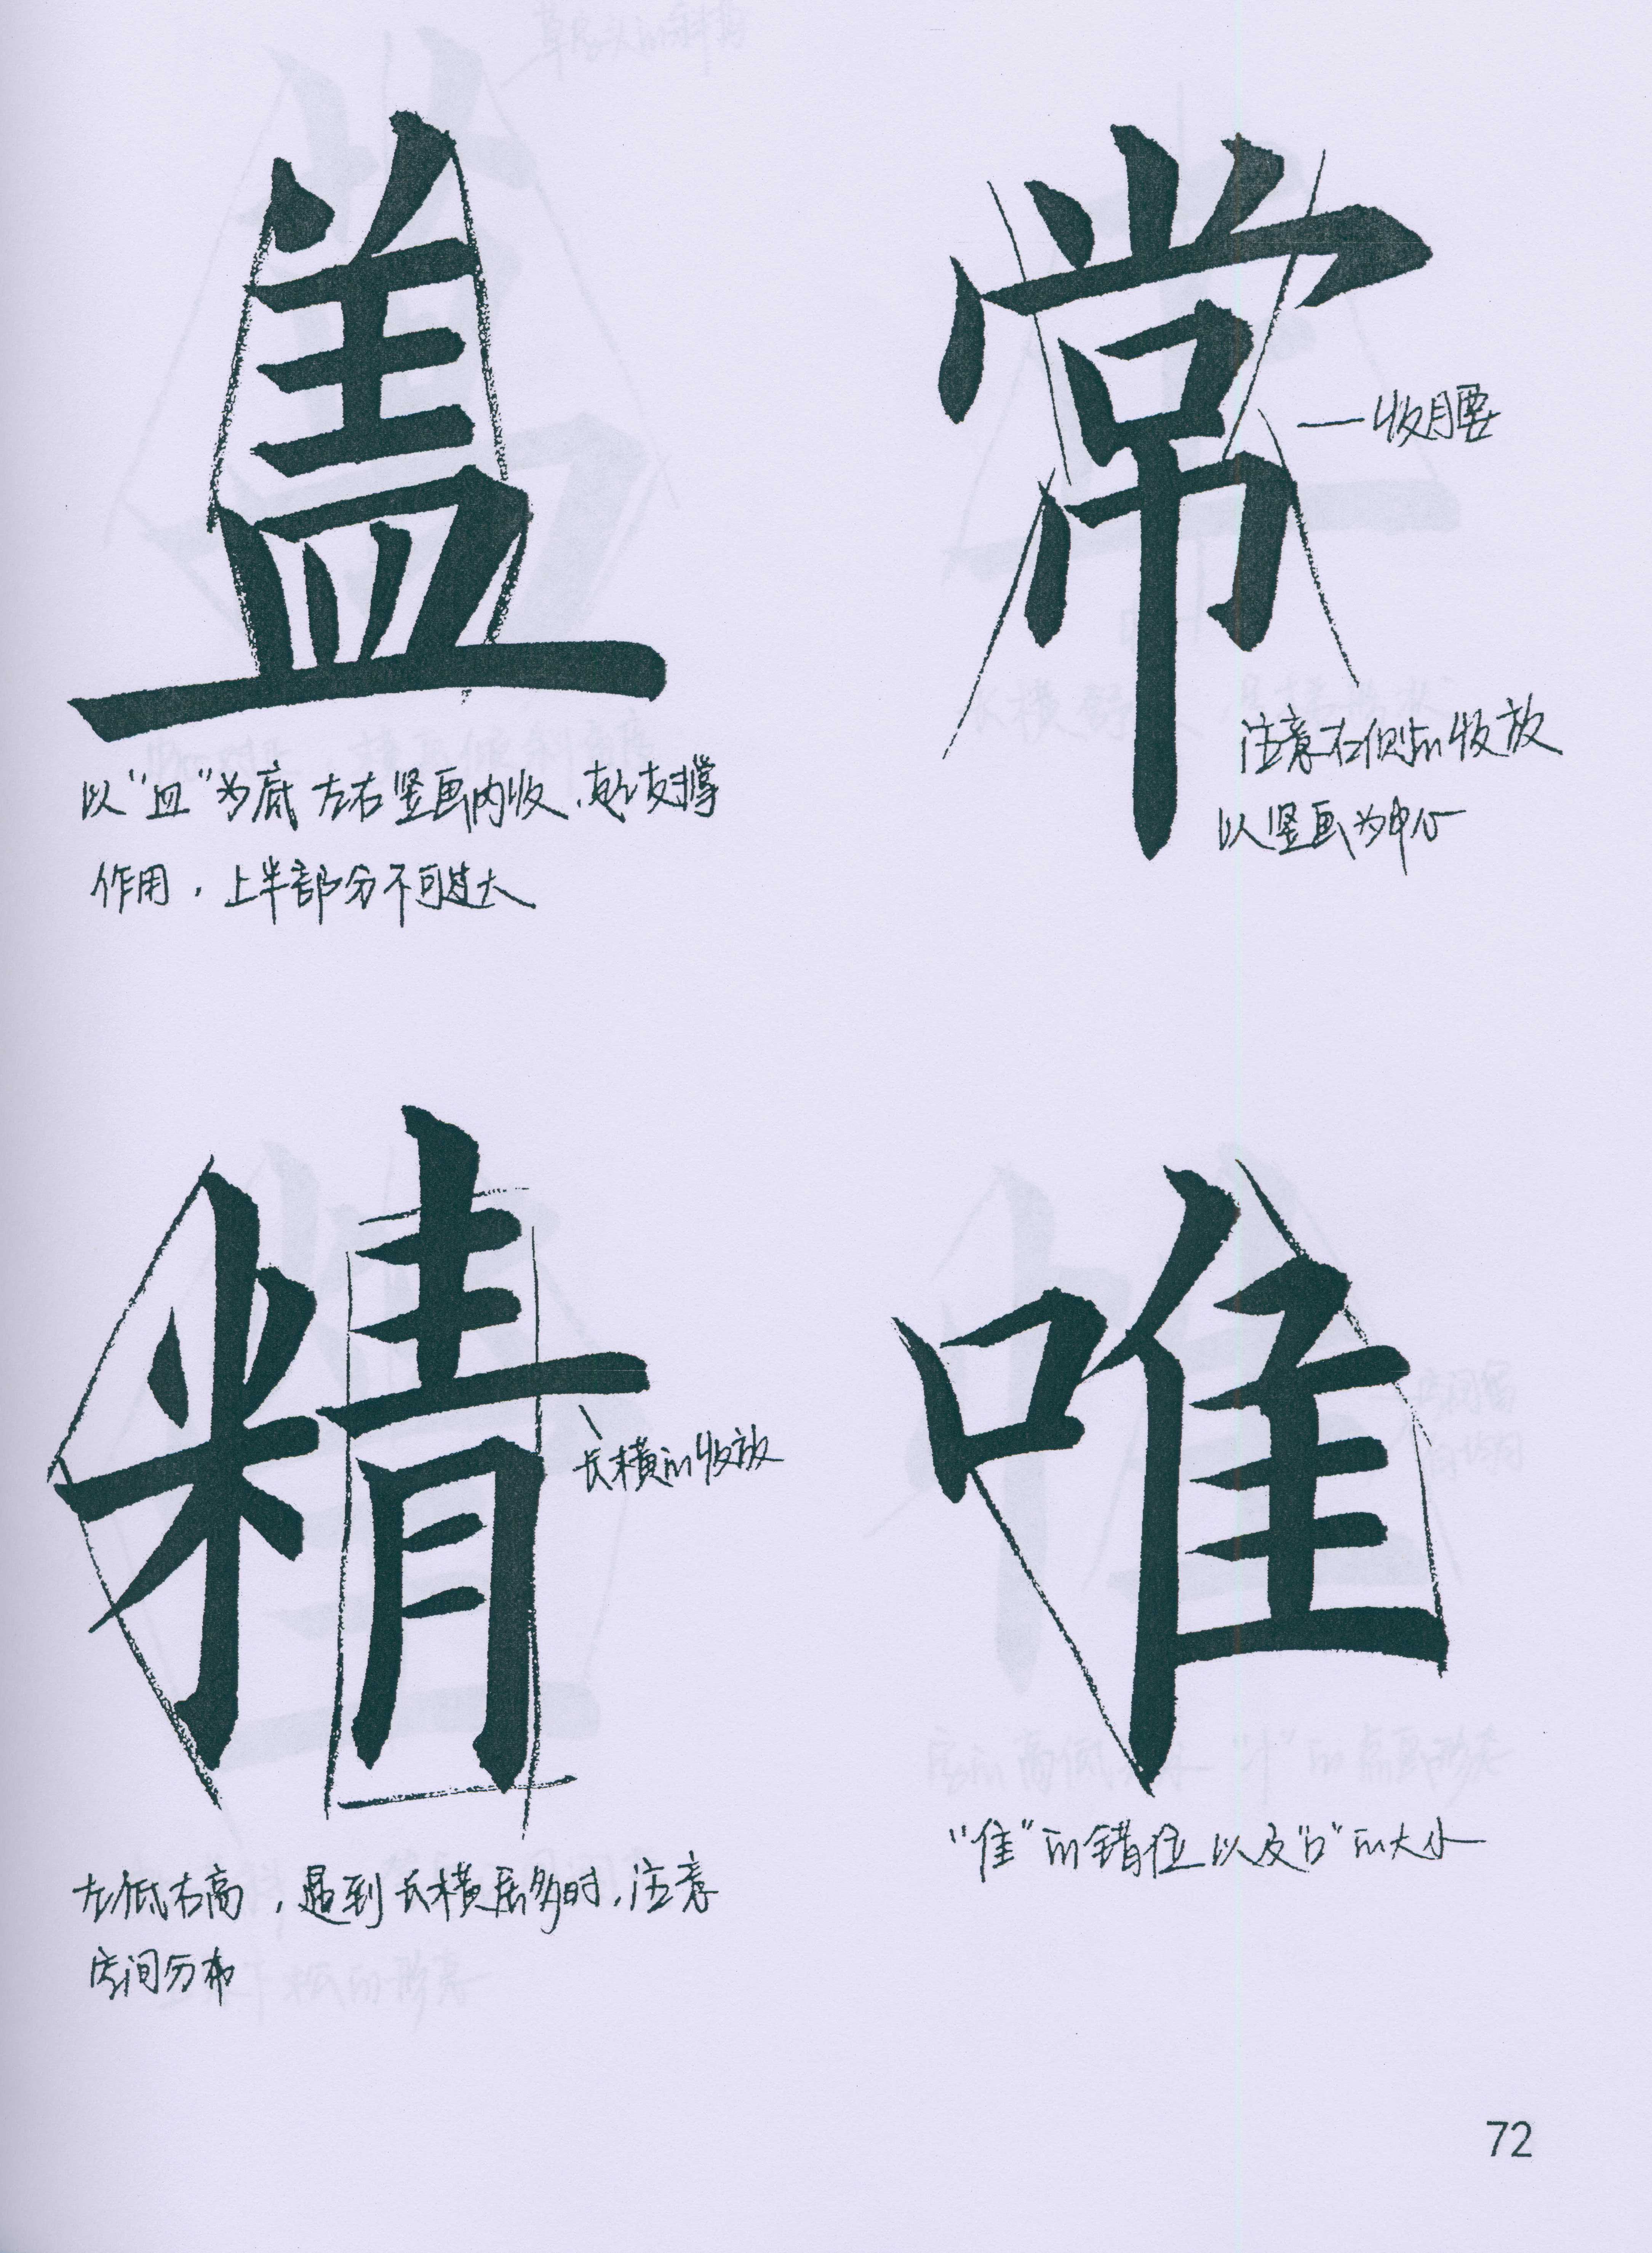 盖
以“皿”为底 左右竖画内收，起支撑
作用，上半部分不可过大
常
—收腰
注意左侧点的收放
以竖画为中心
精
长横的收放
左低右高，遇到长横居多时，注意
空间分布
唯
“隹”的错位以及“口”的大小
72